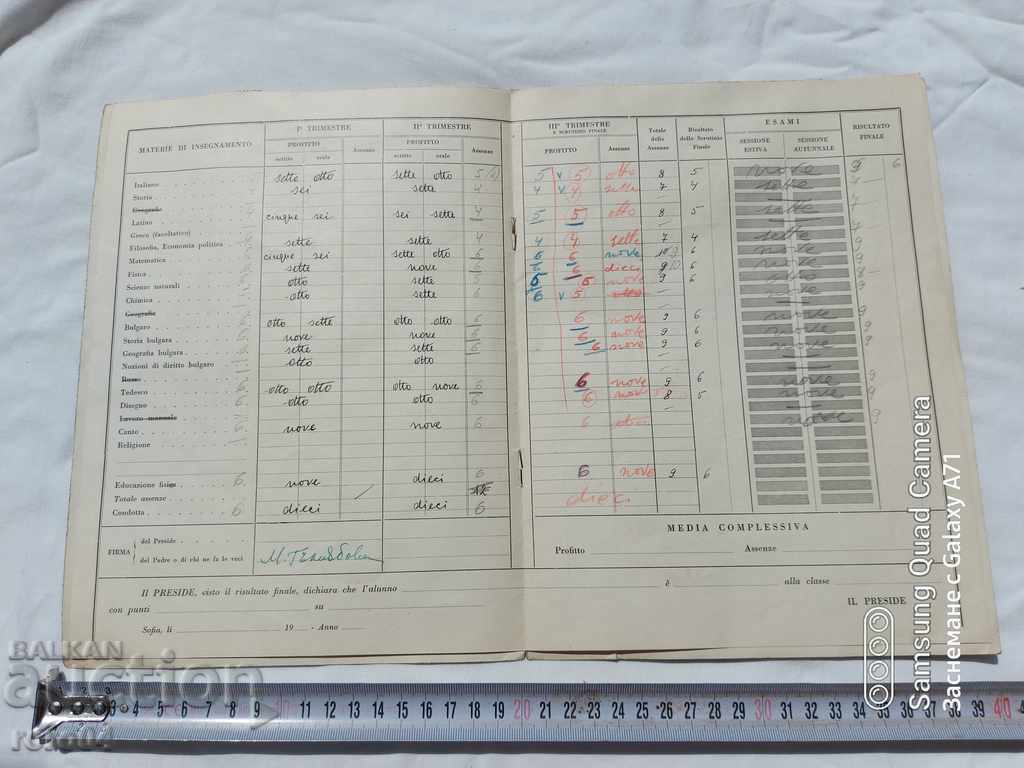 MATERIE DI INSEGNAMENTO I° TRIMESTRE II° TRIMESTRE III° TRIMESTRE E SCRUTINIO FINALE Totale delle Assenze Risultato dello Scrutinio Finale ESAMI RISULTATO FINALE
PROFITTO Assenze PROFITTO Assenze PROFITTO Assenze SESSIONE ESTIVA SESSIONE AUTUNNALE
scritto orale scritto orale
Italiano sette otto sette otto 5 5 v 5 otto 8 5 nove 9 6
Storia sei sette 4 4 v 4 sette 7 4 sette
Geografia
Latino cinque sei sei sette 4 5 5 otto 8 5 sette
Greco (facoltativo)
Filosofia, Economia politica sette sette 4 4 4 sette 7 4 sette
Matematica cinque sei sette otto 6 6 6 nove 6 nove
Fisica sette nove 6 6 6 dieci 9 6 nove
Scienze naturali otto sette 5 6 nove 9 6
Chimica otto sette 6 6 v 5 otto otto
Geografia
Bulgaro otto sette otto otto 6 6 nove 9 6 nove
Storia bulgara nove nove 6 6 nove 9 6 nove
Geografia bulgara sette sette 6 6 nove 9 6 nove
Nozioni di diritto bulgaro otto otto
Russo
Tedesco otto otto otto nove 6 6 nove 9 6 nove 9
Disegno otto otto 6 6 nove 8 5 nove 9
Lavoro manuale
Canto nove nove 6 6 nove 9
Religione
Educazione fisica 6 nove dieci 6 6 nove 9 6
Totale assenze
Condotta 6 dieci dieci 6 dieci
MEDIA COMPLESSIVA
Profitto Assenze
FIRMA
del Preside
del Padre o di chi ne fa le veci
Il PRESIDE, visto il risultato finale, dichiara che l'alunno è alla classe
con punti su
IL PRESIDE
Sofia, li 19 - Anno
Samsung Quad Camera
Заснемане с Galaxy A71
BALKAN
auction
roko04
1 2 3 4 5 6 7 8 9 10 11 12 13 14 15 16 17 18 19 20 21 22 23 24 25 26 27 28 29 30 31 32 33 34 35 36 37 38 39 40